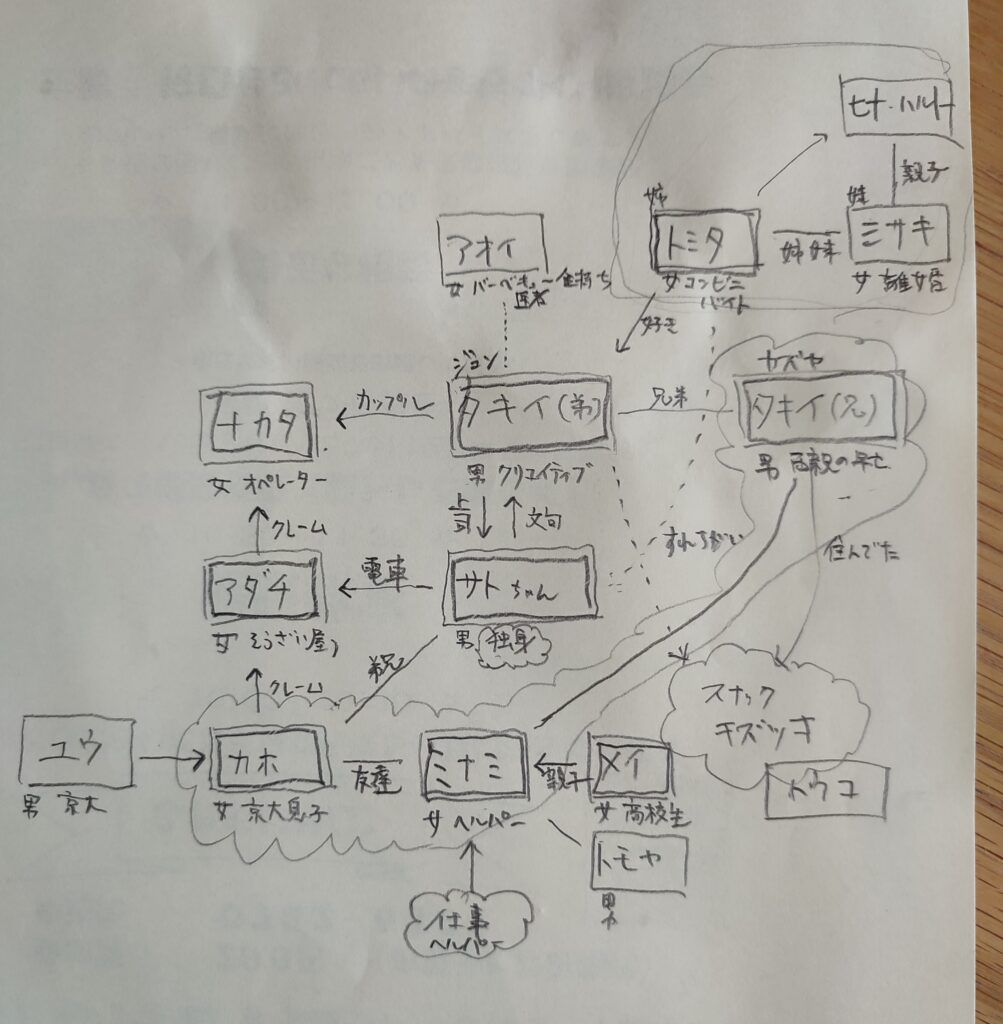 ヒナ・ハルト
親子
姉
妹
トミタ
姉妹
ミサキ
女 コンビニ
バイト
女 離婚
アオイ
女 バーベキュー 金持ち
医者
好き
ジュン
カズヤ
ナカタ
カップル
タキイ(弟)
兄弟
タキイ(兄)
女 オペレーター
男 クリエイティブ
男 両親の早亡
クレーム
上司
文句
すれちがい
住んでた
アダチ
電車
サトちゃん
女 そうざい屋
男 独身
クレーム
ユウ
カホ
友達
ミナミ
親子
メイ
スナック
キズツキ
トウコ
男 京大
女 京大息子
女 ヘルパー
女 高校生
トモヤ
男
仕事
ヘルパー